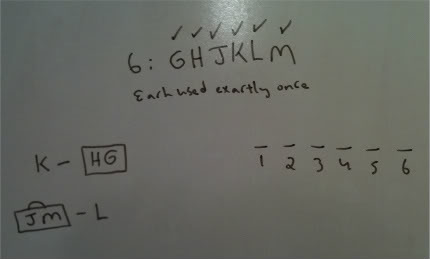 6: G H J K L M
Each used exactly once
K - HG
1 2 3 4 5 6
JM - L